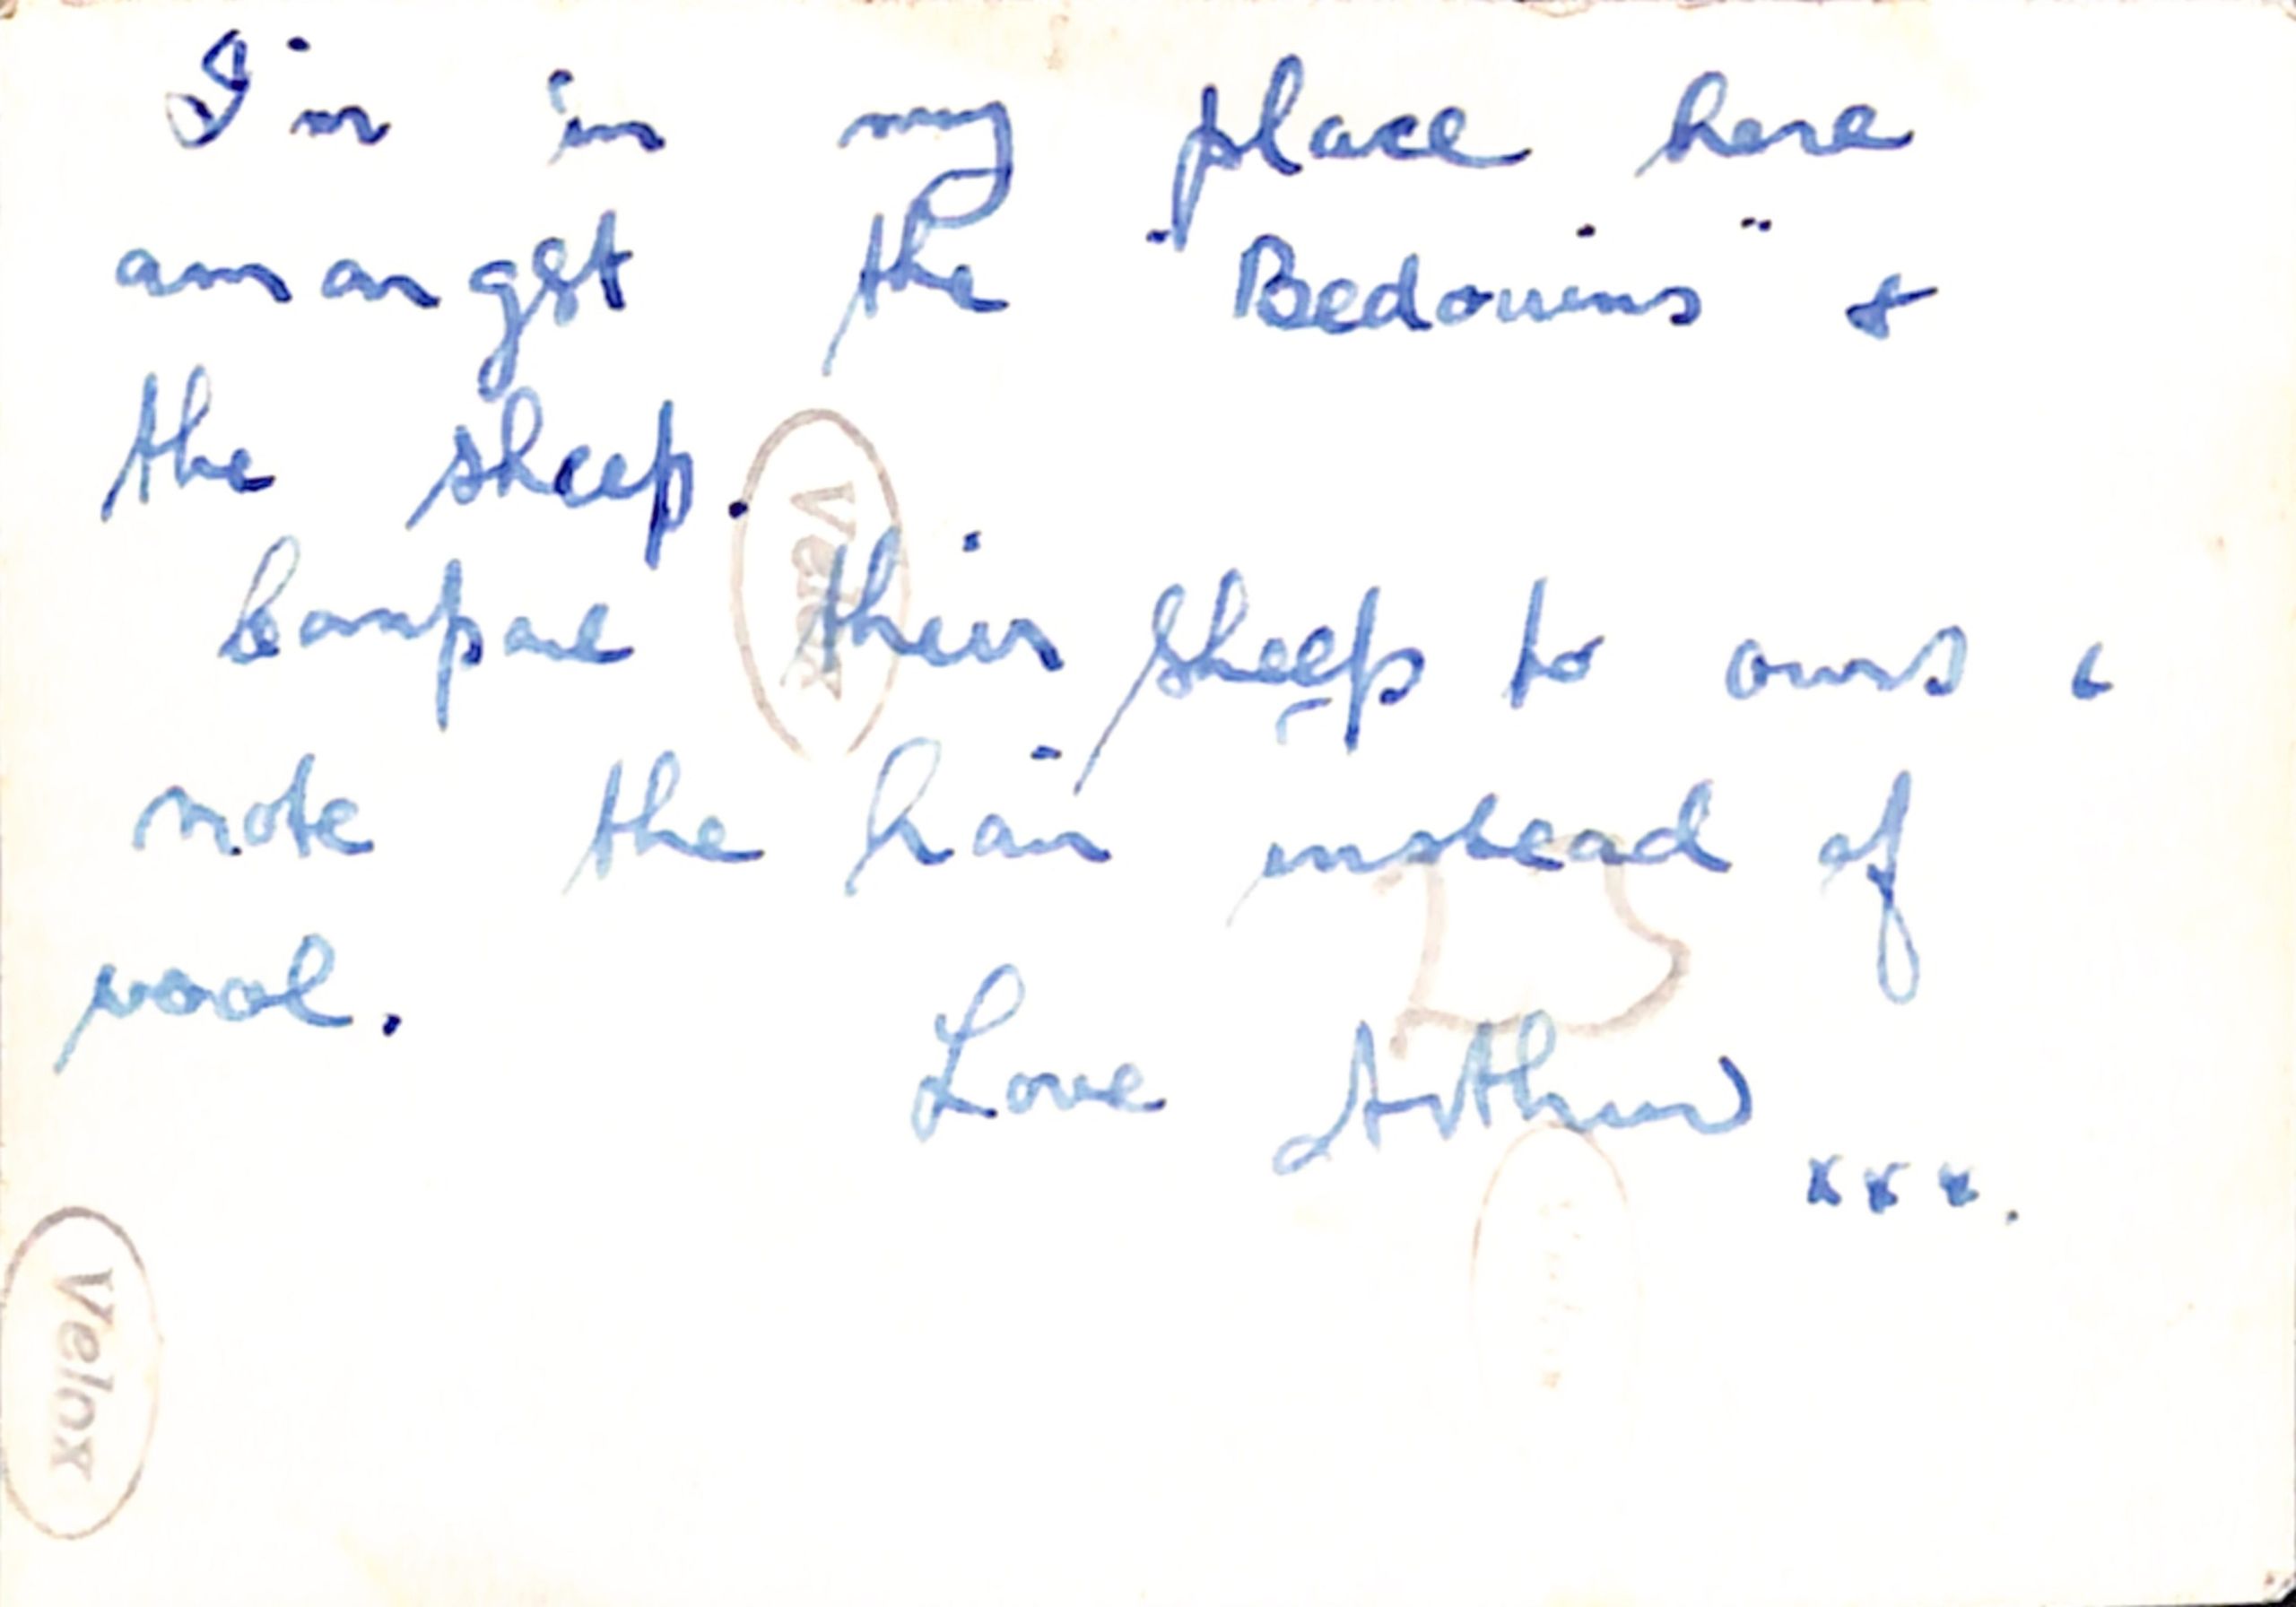 I'm in my place here
amongst the "Bedouins" &
the sheep.
Compare their sheep to ours &
note the hair instead of
wool.
Love Arthur
xxx.
Velox
Velox